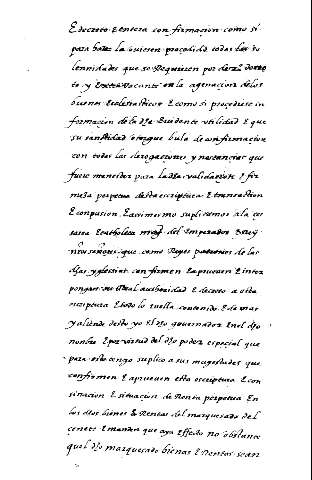 E decreto E entera confirmacion como si
para hazer la huiesen procedido todas las so
lennidades que se Requieren por derecho
to y en la agenacion de los
bienes Eclesiasticos E como si procediese in
formacion de la dha Evidente vtilidad E que
su santidad otorgue bula de confirmacion
con todas las derogaciones y nstancias que
fuere menester para la dha validacion E fir
meza perpetua desta escriptura E transaction
E conpusicion E assimismo suplicamos a la ces
area E catholica magt del Emperador E Rey
nros señores que como Reyes patrones de las
dhas yglesias confirmen E aprueuen E inter
pongan su Real authoridad E decreto a esta
escriptura E todo lo en ella contenido E de mas
y allende desto yo El dho governador En el dho
nonbre E por virtud del dho poder especial que
para esto tengo suplico a sus magestades que
confirmen E aprueuen esta escriptura E con
sinacion E situacion de Renta perpetua En
los dhos bienes E Rentas del marquesado del
çenete E manden que aya Effecto no obstante
quel dho marquesado bienes E Rentas sean